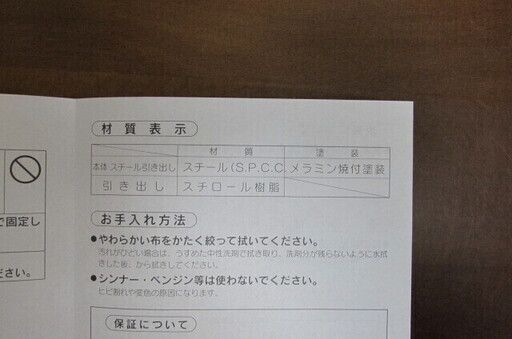 材質表示
材質 塗装
本体 スチール引き出し スチール(S.P.C.C. メラミン焼付塗装
引き出し スチロール樹脂
お手入れ方法
●やわらかい布をかたく絞って拭いてください。
汚れがひどい場合は、うすめた中性洗剤で拭き取り、洗剤分が残らないように水拭
きした後、から拭きしてください。
●シンナー・ベンジン等は使わないでください。
ヒビ割れや変色の原因になります。
保証について
で固定し
ださい。